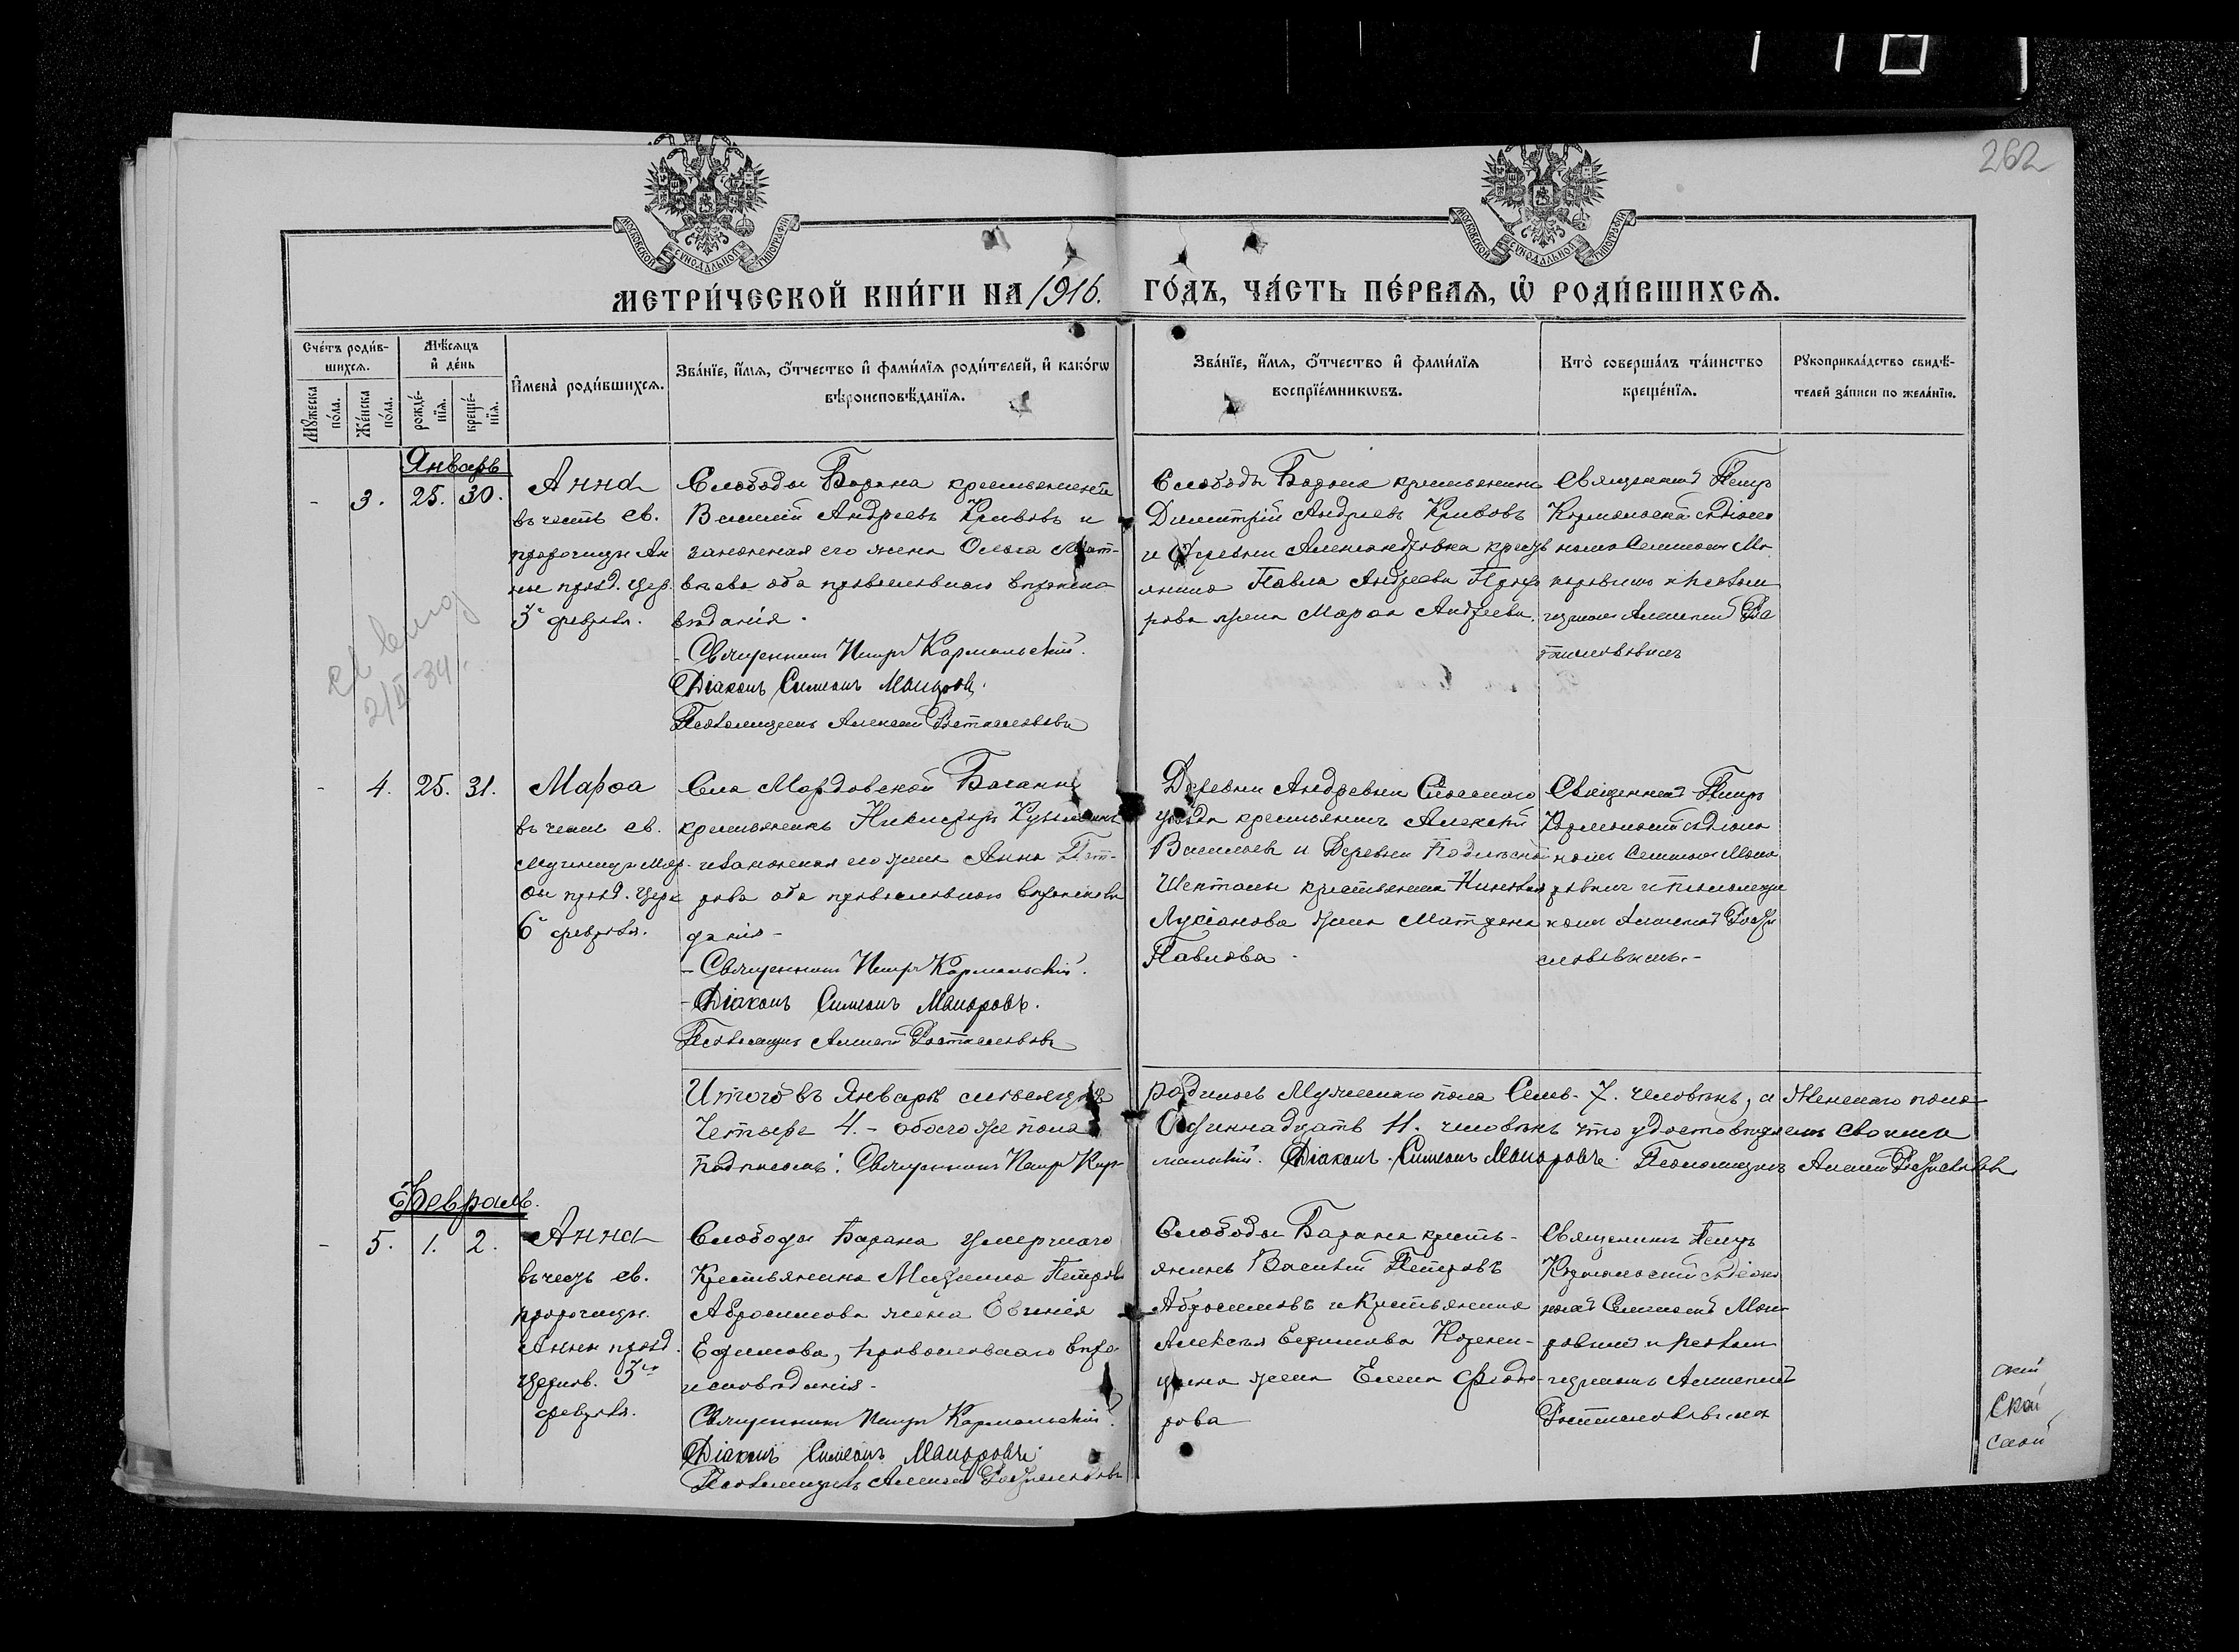 262
МОСКОВСКОЙ СѴНОДАЛЬНОЙ ТИПОГРАФІИ
МОСКОВСКОЙ СѴНОДАЛЬНОЙ ТИПОГРАФІИ
МЕТРИ́ЧЕСКОЙ КНИ́ГИ НА 1916. ГО́ДЪ, ЧА́СТЬ ПЕ́РВАЯ, Ѡ РОДИ́ВШИХСЯ.
Сче́тъ роди́в-
шихся.
Мꙋжеска
по́ла.
Же́нска
по́ла.
Мѣ́сяцъ
и҆ де́нь
рожде́-
нїя.
креще́-
нїя.
И҆мена̀ роди́вшихся.
Зва́нїе, и҆́мя, ѻ҆́тчество и҆ фами́лїя роди́телей, и҆ како́гѡ
вѣроисповѣ́данїя.
Зва́нїе, и҆́мя, ѻ҆́тчество и҆ фами́лїя
воспрїе́мникѡвъ.
Кто̀ соверша́лъ та́инство
креще́нїя.
Рꙋкоприкла́дство свидѣ́-
телей за́писи по жела́нїю.
Январь
- 3. 25. 30.
Анна
въ честь св.
пророчицы Ан
ны празд. цер.
3го февраля.
Слободы Барана крестьянинъ
Василій Андреевъ Кривовъ и
законная его жена Ольга Мат-
вѣева оба православнаго вѣроиспо
вѣданія.
- Священникъ Петръ Кармальскій.
Діаконъ Симеонъ Маиоровъ.
Псаломщикъ Алексѣй
Слободы Барана крестьянинъ
Димитрій Андреевъ Кривовъ
и деревни Александровка крест
янина Павла Андреева
рова жена Марѳа Андреева.
Священникъ Петръ
Кармальскій съ діако
номъ Симеономъ Маи
оровымъ и псалом
щикомъ Алексѣемъ
2/II 34 г.
- 4. 25. 31.
Марѳа
въ честь св.
мученицы Мар
ѳы празд. церк
6го февраля.
Села Мордовской Баганы
крестьянинъ Никифоръ Кузьминъ
и законная его жена Анна Пет-
рова оба православнаго вѣроисповѣ
данія -
- Священникъ Петръ Кармальскій.
- Діаконъ Симеонъ Маиоровъ.
Псаломщикъ Алексѣй
Деревни Андреевки Спасскаго
уѣзда крестьянинъ Алексѣй
Васильевъ и Деревни Подлѣсной
Шенталы крестьянина
Лукіанова жена Матрона
Павлова.
Священникъ Петръ
Кармальскій съ діако
номъ Симеономъ Маио
ровымъ и псаломщи
комъ Алексѣемъ
Итого въ Январѣ мѣсяцѣ родилось Мужескаго пола Семь - 7. человѣкъ, а Женскаго пола
Четыре 4. - обоего же пола Одиннадцать 11. человѣкъ что удостовѣряемъ своимъ
подписомъ: Священникъ Петръ Кар-мальскій. Діаконъ Симеонъ Маиоровъ. Псаломщикъ Алексѣй
Февраль.
- 5. 1. 2.
Анна
въ честь св.
пророчицы
Анны празд.
церков. 3го
февраля.
Слободы Барана умершаго
Крестьянина Михаила Петрова
Абросимова жена Евгенія
Ефимова, православнаго вѣро
исповѣданія -
Священникъ Петръ Кармальскій.
Діаконъ Симеонъ Маиоровъ.
Псаломщикъ Алексѣй
Слободы Барана кресть-
янинъ Василій Петровъ
Абросимовъ и Крестьянина
Алексѣя Ефимова
жена Елена Ѳедо-
рова
Священникъ Петръ
Кармальскій съ діако
номъ Симеономъ Маио
ровымъ и псалом
щикомъ Алексѣемъ
скій
Ской